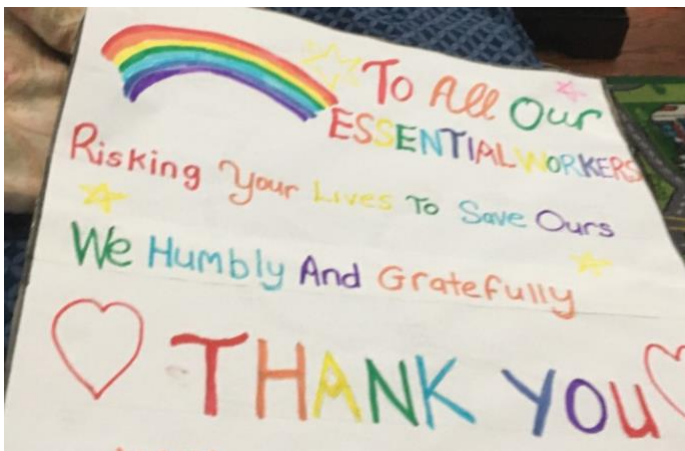 To All Our
ESSENTIAL WORKERS
Risking Your Lives To Save Ours
We Humbly And Gratefully
THANK YOU